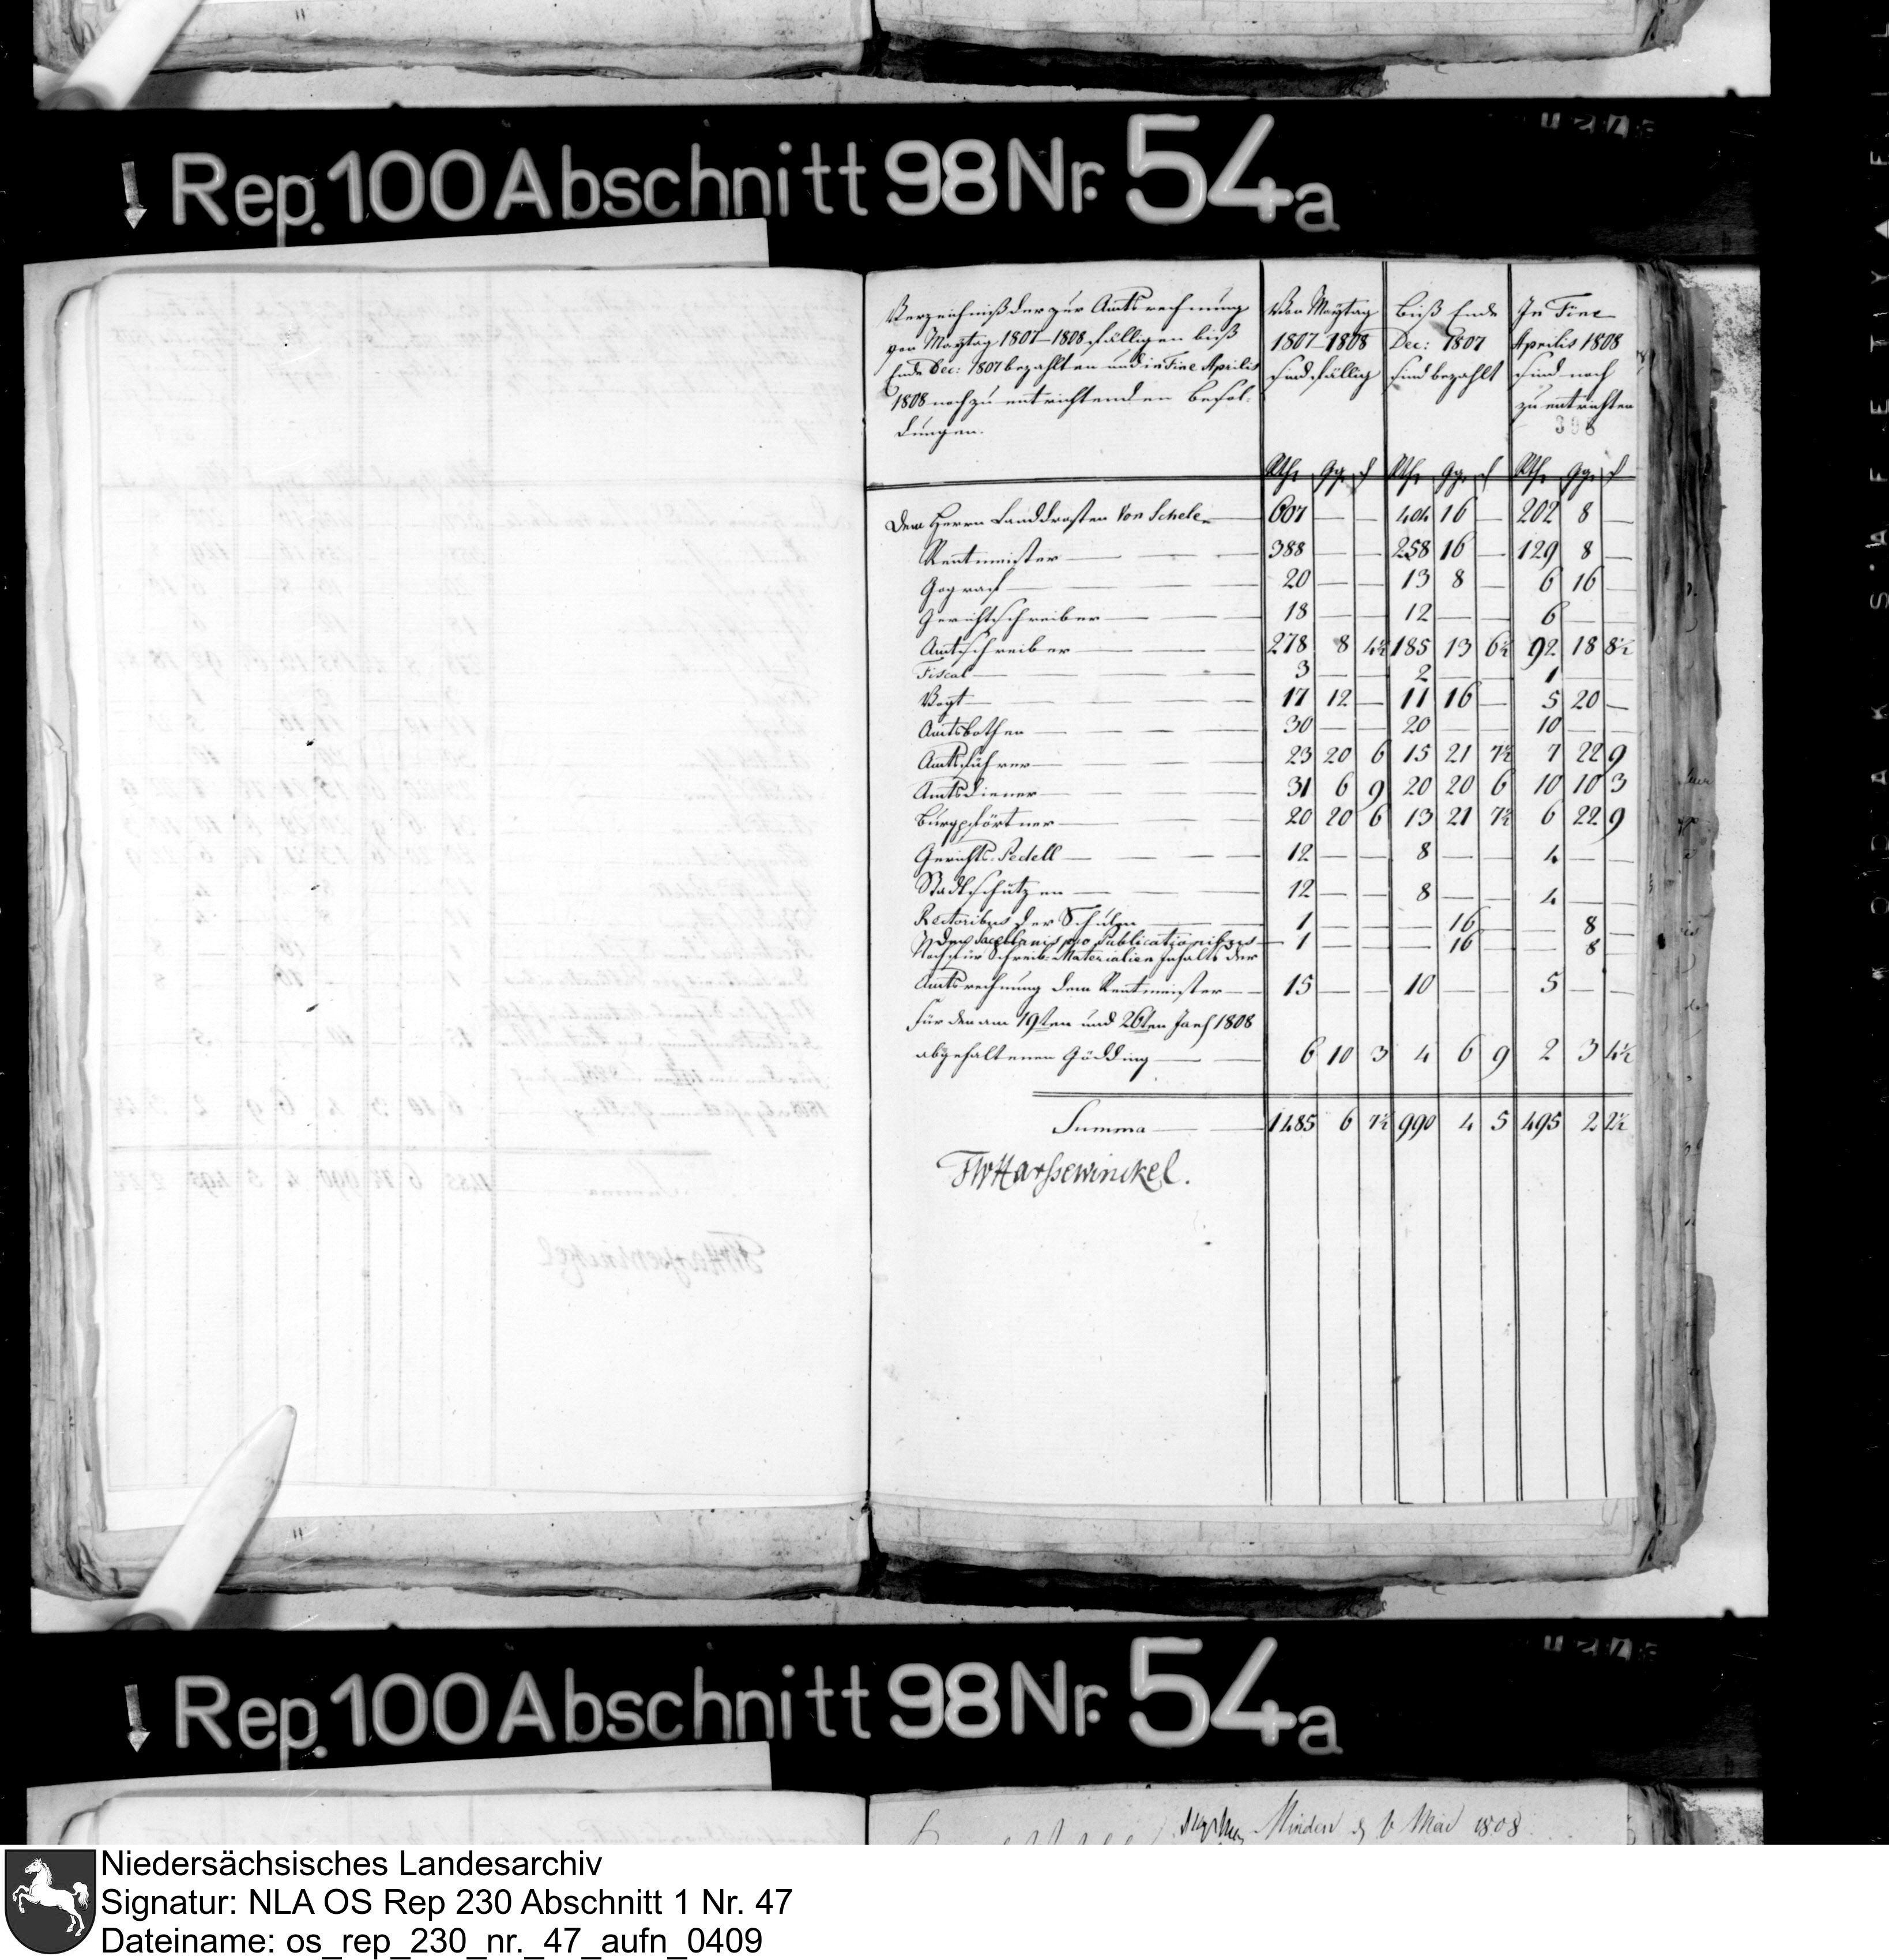 Rep. 100 Abschnitt 98 Nr. 54a
Verzeichniß der zur Amtsrechnung
von Maytag 1807–1808 fälligen biß
Ende Dec: 1807 bezahlten und in Fine Aprilis
1808 noch zu entrichtenden Besol-
dungen.
Von Maytag
1807–1808
sind fällig
Biß Ende
Dec: 1807
sind bezahlt
In Fine
Aprilis 1808
sind noch
zu entrichten
398
Rthr Ggr d Rthr Ggr d Rthr Ggr d
Dem Herrn Landdrosten Von Schele 607 — — 404 16 — 202 8 —
Rentmeister 388 — — 258 16 — 129 8 —
Gograf 20 — — 13 8 — 6 16 —
Gerichtschreiber 18 — — 12 — — 6 — —
Amtschreiber 278 8 4½ 185 13 6½ 92 18 8½
Fiscal 3 — — 2 — — 1 — —
Vogt 17 12 — 11 16 — 5 20 —
Amtsbothen 30 — — 20 — — 10 — —
Amtsführer 23 20 6 15 21 7½ 7 22 9
Amtsdiener 31 6 9 20 20 6 10 10 3
Burgpförtner 20 20 6 13 21 7½ 6 22 9
Gerichts-Pedell 12 — — 8 — — 4 — —
Stadtschützen 12 — — 8 — — 4 — —
Rectoribus der Schulen 1 — — — 16 — — 8 —
Den Sacellanis pro Publicationibus 1 — — — 16 — — 8 —
Noch für Schreib-Materialien Inhalts der
Amtsrechnung dem Rentmeister 15 — — 10 — — 5 — —
Für den am 19ten und 26ten Jan 1808
abgehaltenen Gödding 6 10 3 4 6 9 2 3 4½
Summa 1485 6 7½ 990 4 5 495 2 2½
FW Harssewinckel.
Rep. 100 Abschnitt 98 Nr. 54a
Minden 6 Mai 1808
Niedersächsisches Landesarchiv
Signatur: NLA OS Rep 230 Abschnitt 1 Nr. 47
Dateiname: os_rep_230_nr._47_aufn_0409